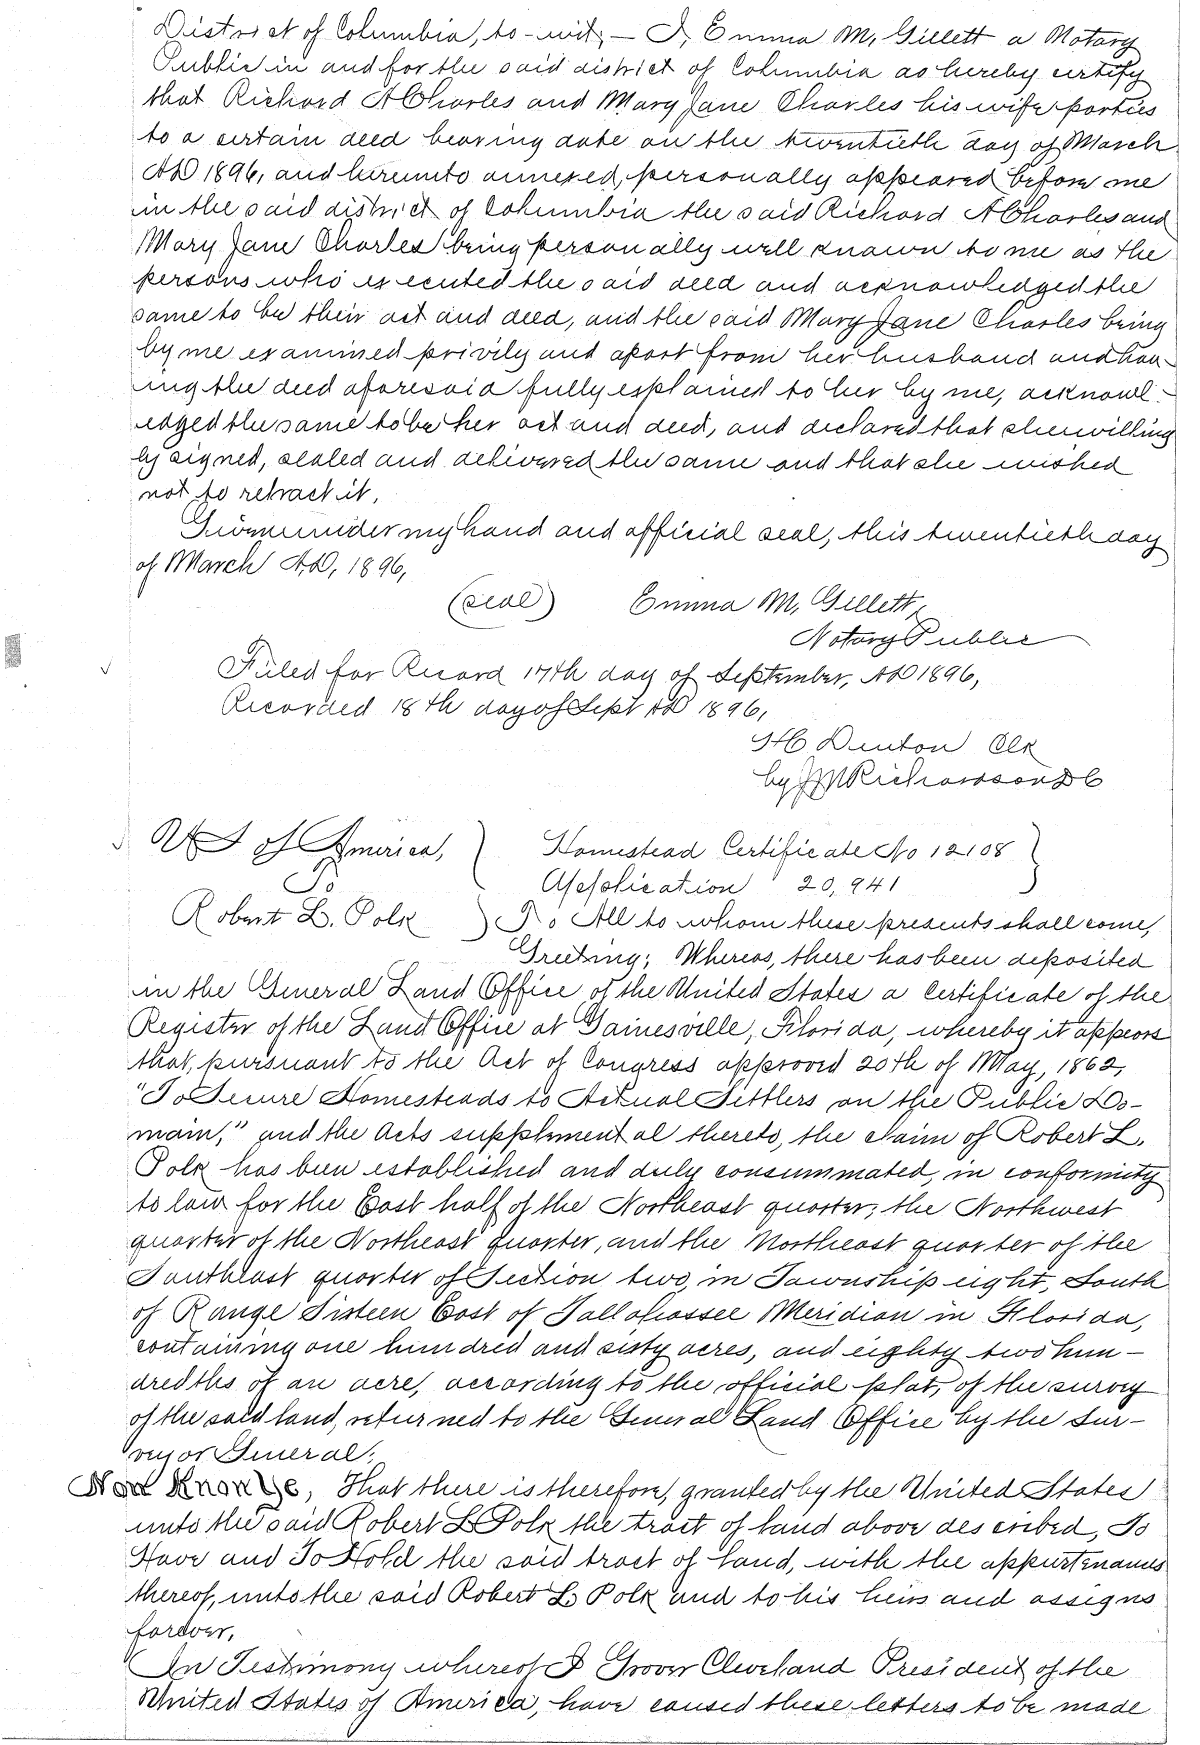 District of Columbia, to-wit,— I, Emma M, Gillett a Notary
Public in and for the said district of Columbia as hereby certify
that Richard A Charles and Mary Jane Charles his wife parties
to a certain deed bearing date on the twentieth day of March
AD 1896, and hereunto annexed, personally appeared before me
in the said district of Columbia the said Richard A Charles and
Mary Jane Charles being personally well known to me as the
persons who executed the said deed and acknowledged the
same to be their act and deed, and the said Mary Jane Charles being
by me examined privily and apart from her husband and hav-
ing the deed aforesaid fully explained to her by me, acknowl-
edged the same to be her act and deed, and declared that she willing
ly signed, sealed and delivered the same and that she wished
not to retract it,
Given under my hand and official seal, this twentieth day
of March A,D, 1896,
(seal) Emma M, Gillett,
Notary Public
Filed for Record 17th day of September, AD 1896,
Recorded 18th day of Sept AD 1896,
H C Denton Clk
by J M Richardson D C
U S of America, } Homestead Certificate No 12108 }
To Application 20,941
Robert L. Polk } To All to whom these presents shall come,
Greeting; Whereas, there has been deposited
in the General Land Office of the United States a certificate of the
Register of the Land Office at Gainesville, Florida, whereby it appears
that, pursuant to the Act of Congress approved 20th of May, 1862,
"To Secure Homesteads to Actual Settlers on the Public Do-
main," and the Acts supplemental thereto, the claim of Robert L.
Polk has been established and duly consummated, in conformity
to law for the East half of the Northeast quarter; the Northwest
quarter of the Northeast quarter, and the Northeast quarter of the
Southeast quarter of Section two, in Township eight, South
of Range Sixteen East of Tallahassee Meridian in Florida,
containing one hundred and sixty acres, and eighty two hun-
dredths of an acre, according to the official plat, of the survey
of the said land, returned to the General Land Office by the Sur-
veyor General;
Now Know Ye, That there is therefore, granted by the United States
unto the said Robert L Polk the tract of land above described, To
Have and To Hold the said tract of land, with the appurtenances
thereof, unto the said Robert L Polk and to his heirs and assigns
forever,
In Testimony whereof I Grover Cleveland President of the
United States of America, have caused these letters to be made